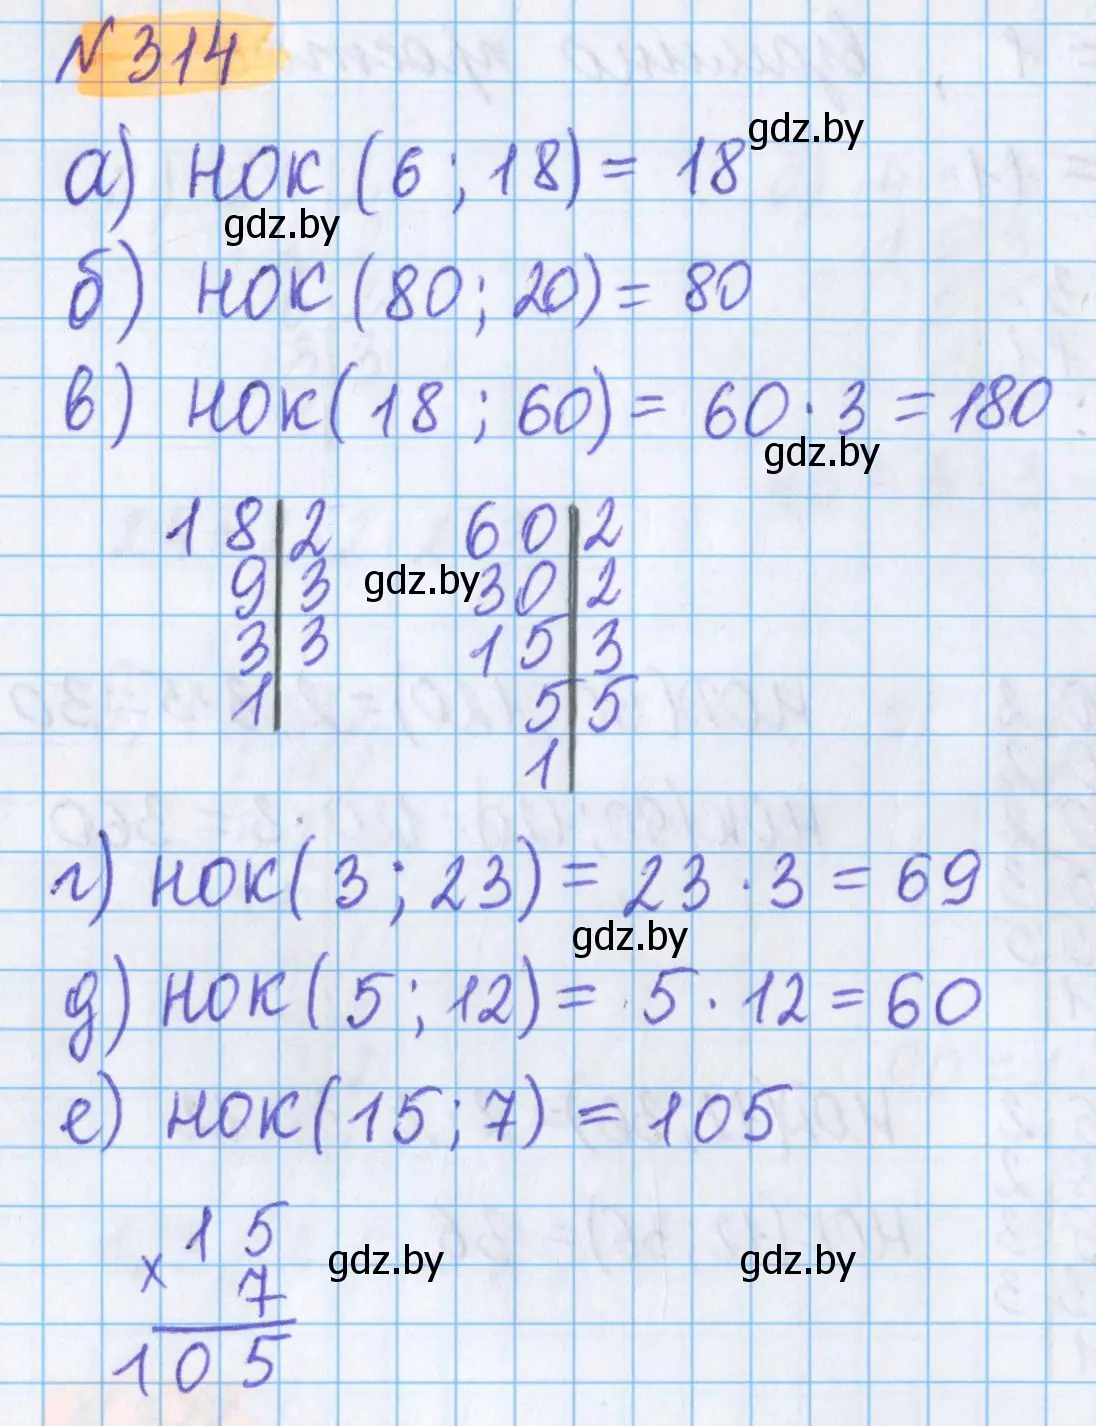 № 314
gdz.by
а) НОК (6 ; 18) = 18
gdz.by
б) НОК (80 ; 20) = 80
в) НОК (18 ; 60) = 60 · 3 = 180
gdz.by
18 | 2 60 | 2
9 | 3 gdz.by 30 | 2
3 | 3 15 | 3
1 | 5 | 5
1 |
г) НОК (3 ; 23) = 23 · 3 = 69
gdz.by
д) НОК (5 ; 12) = 5 · 12 = 60
е) НОК (15 ; 7) = 105
15
× 7
gdz.by gdz.by
105